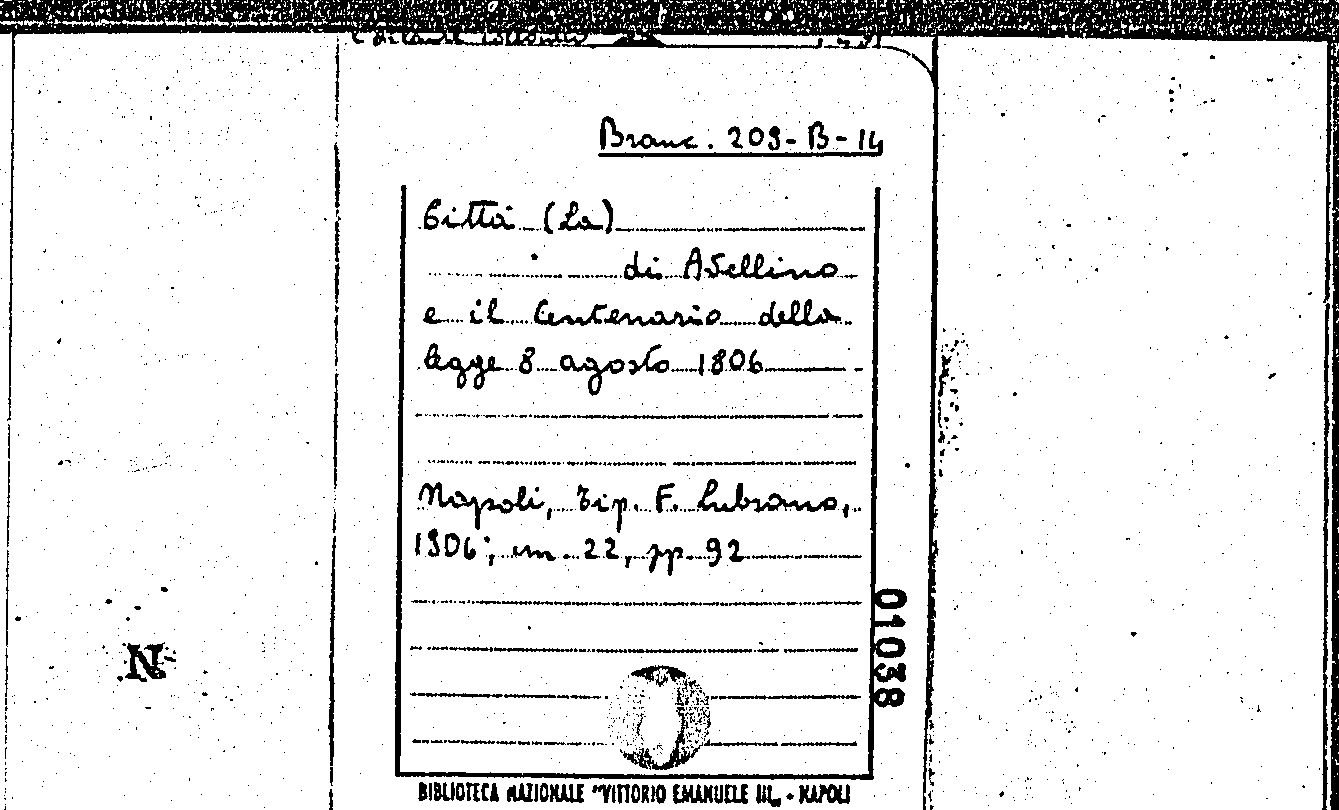 Branc. 209-B-14
Città (La)
di Avellino
e il Centenario della
legge 8 agosto 1806
Napoli, Tip. F. Lubrano,
1906; cm. 22, pp. 92
01038
N
BIBLIOTECA NAZIONALE "VITTORIO EMANUELE III„ - NAPOLI